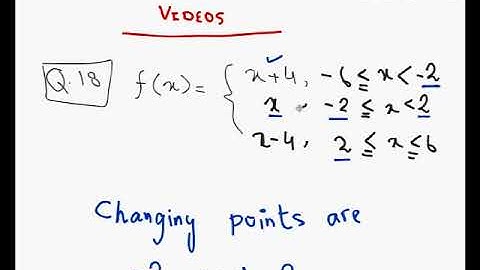 VIDEOS
Q.18 f(x) = { x+4, -6 ≤ x < -2
x, -2 ≤ x < 2
x-4, 2 ≤ x ≤ 6
Changing points are